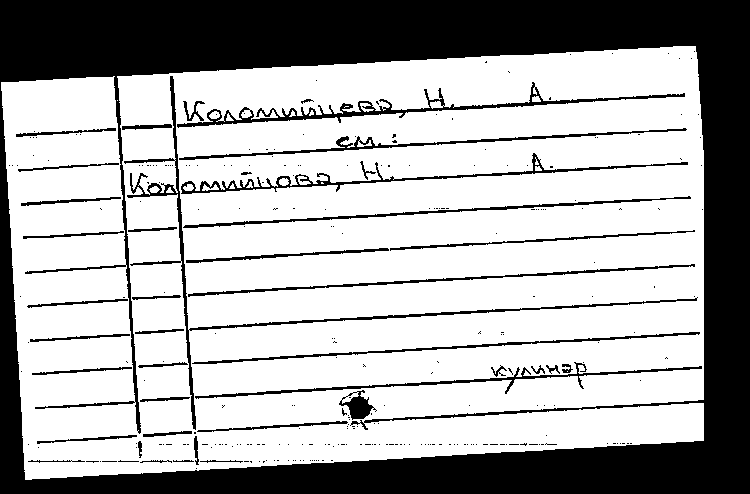 Коломийцева, Н. А.
см.:
Коломийцова, Н. А.
кулинар